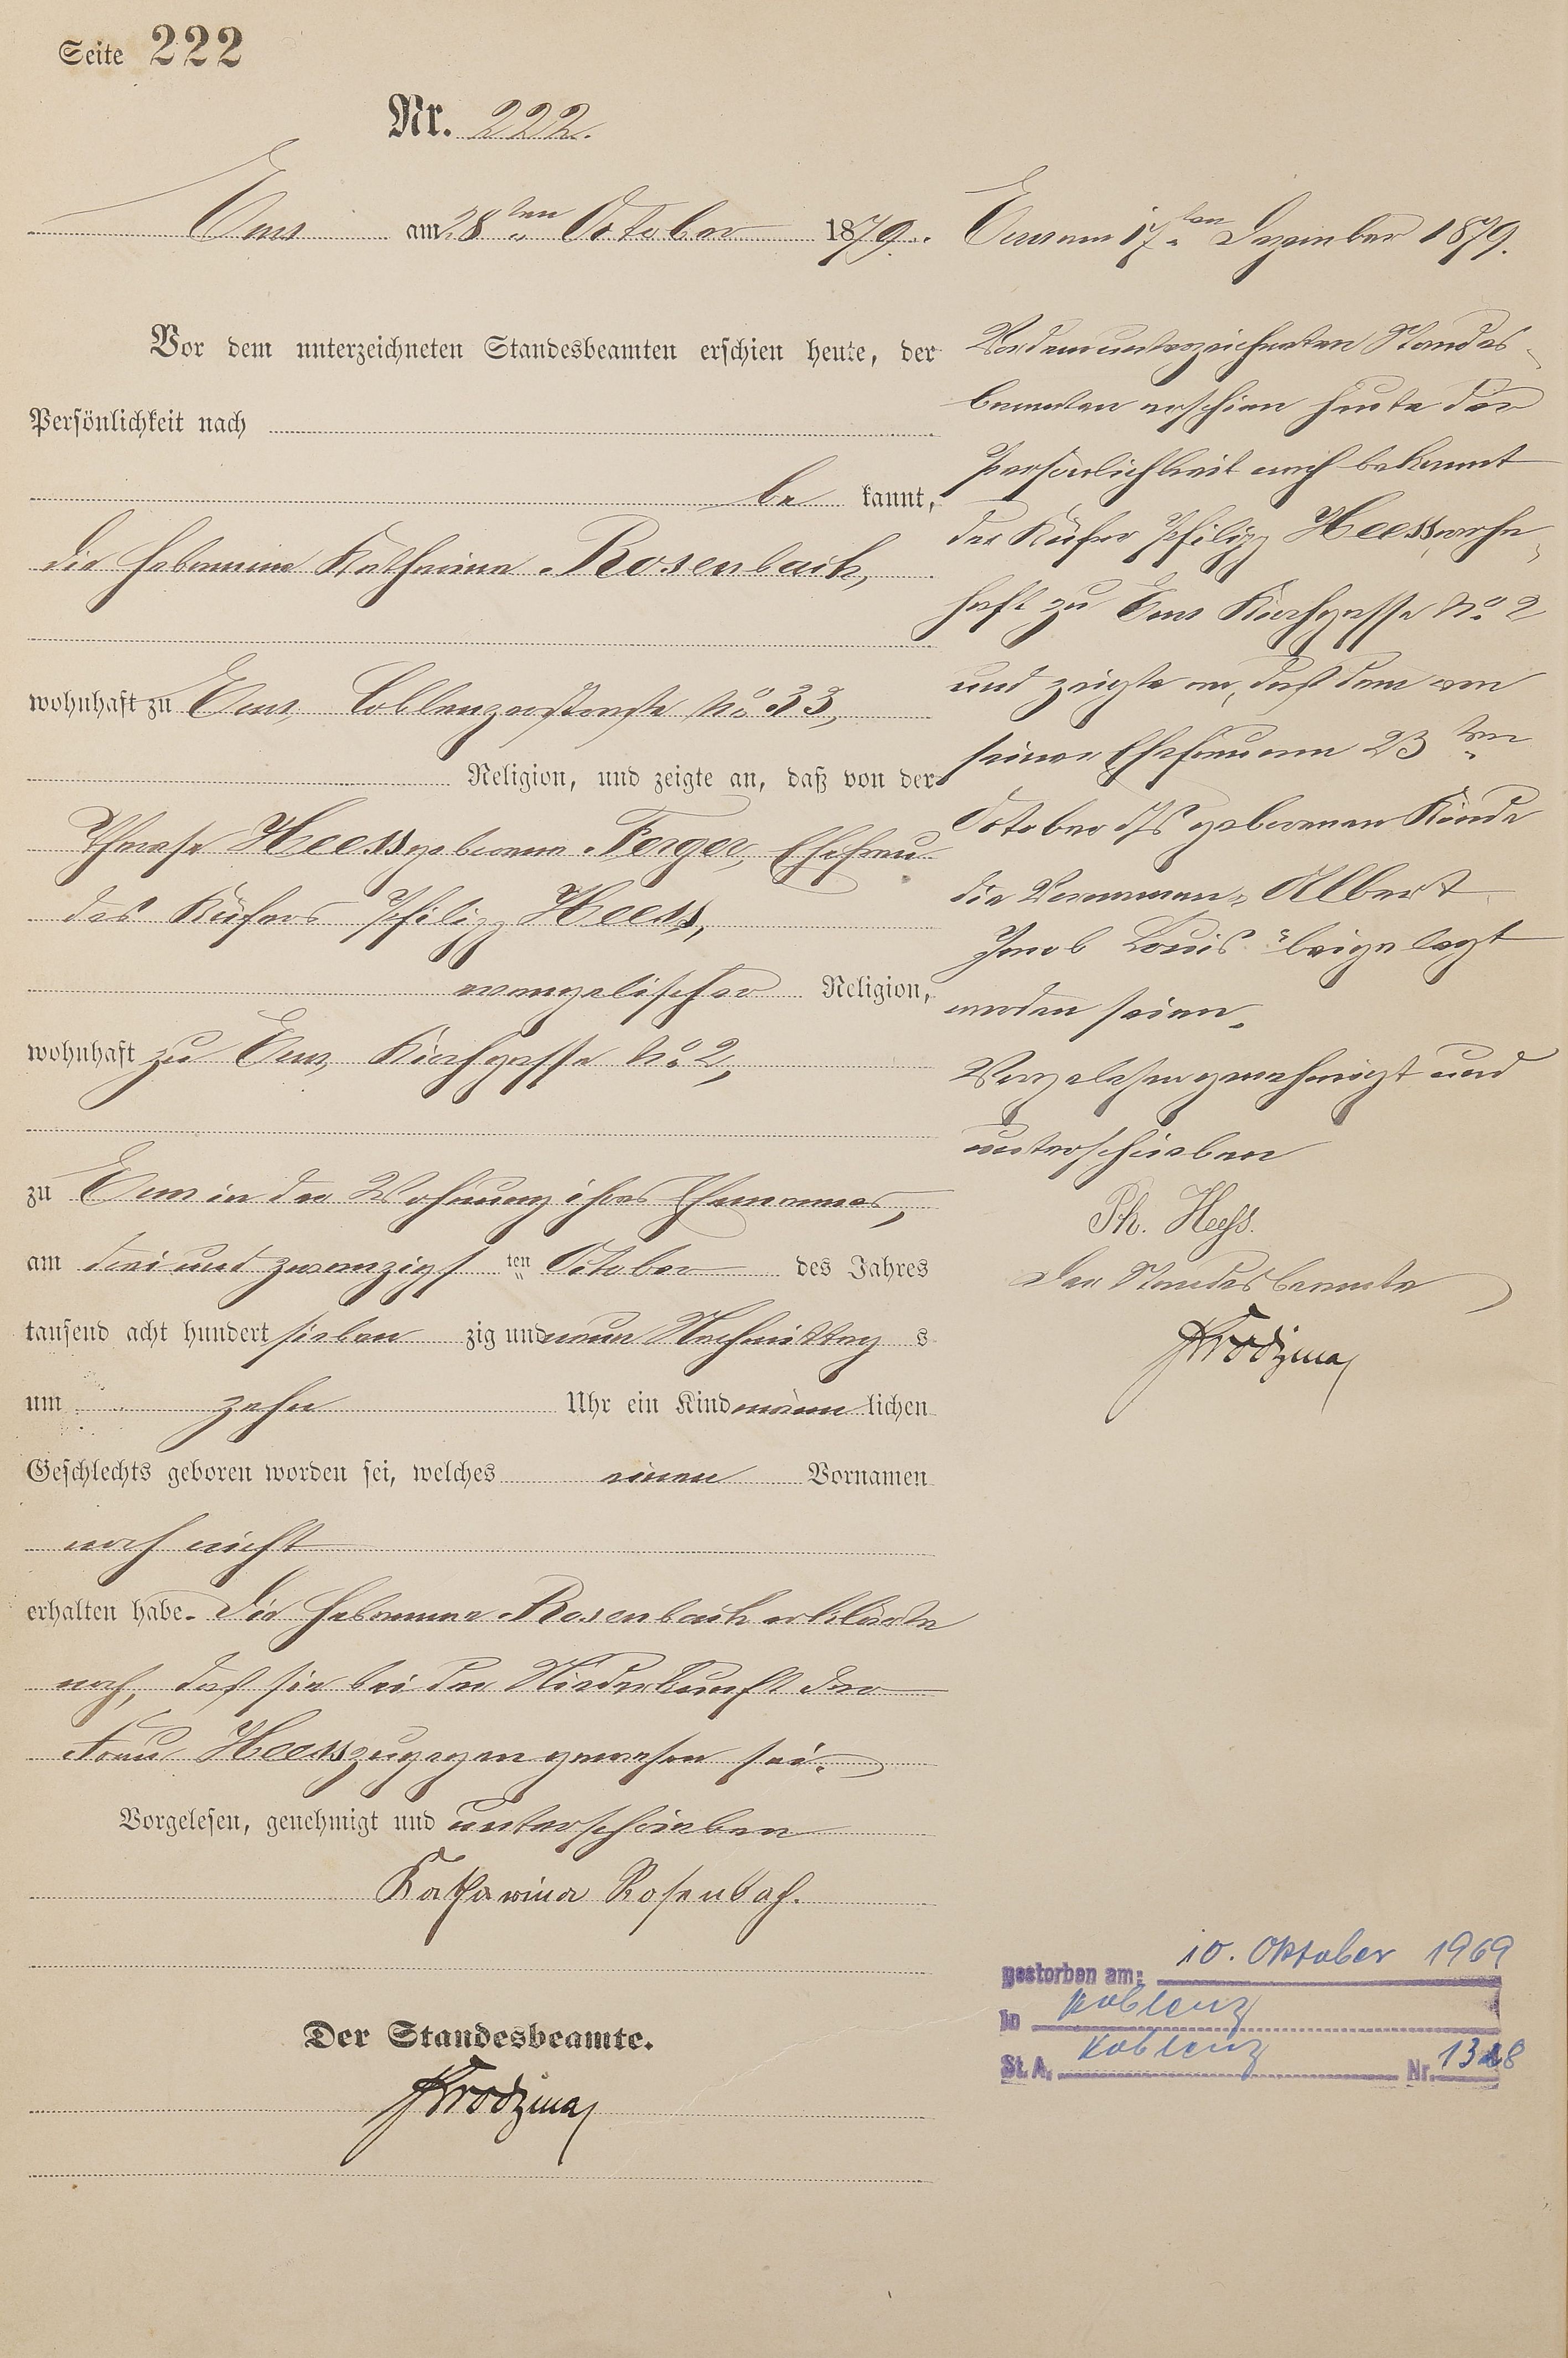 Seite 222
Nr. 222.
Ems am 28ten October 1879.
Vor dem unterzeichneten Standesbeamten erschien heute, der
Persönlichkeit nach
be kannt,
die Hebamme Katharina Rosenbach,
wohnhaft zu Ems, Coblenzerstraße No. 33,
Religion, und zeigte an, daß von der
Therese Heess geborenen Ferger, Ehefrau
des Küfers Philipp Heess,
evangelischer Religion,
wohnhaft zu Ems, Kirchgasse No. 2,
zu Ems in der Wohnung ihres Ehemannes,
am drei und zwanzigsten October des Jahres
tausend acht hundert sieben zig und neun Nachmittag s
um zehn Uhr ein Kind männ lichen
Geschlechts geboren worden sei, welches einen Vornamen
noch nicht
erhalten habe. Die Hebamme Rosenbach erklärte
noch, daß sie bei der Niederkunft der
Frau Heess zugegen gewesen sei.
Vorgelesen, genehmigt und unterschrieben
Katharina Rosenbach.
Der Standesbeamte.
Ems am 17ten Dezember 1879.
Vor dem unterzeichneten Standes-
beamten erschien heute der
Persönlichkeit nach bekannt
der Küfer Philipp Heess wohn-
haft zu Ems Kirchgasse No. 2
und zeigte an, daß dem von
seiner Ehefrau am 23ten
October d/Js geborenen Kinde
die Vornamen „Albert
Jacob Louis“ beigelegt
worden seien.
Vorgelesen genehmigt und
unterschrieben
Ph. Heeß.
Der Standesbeamte
gestorben am: 10. Oktober 1969
in Koblenz
St. A. Koblenz Nr.